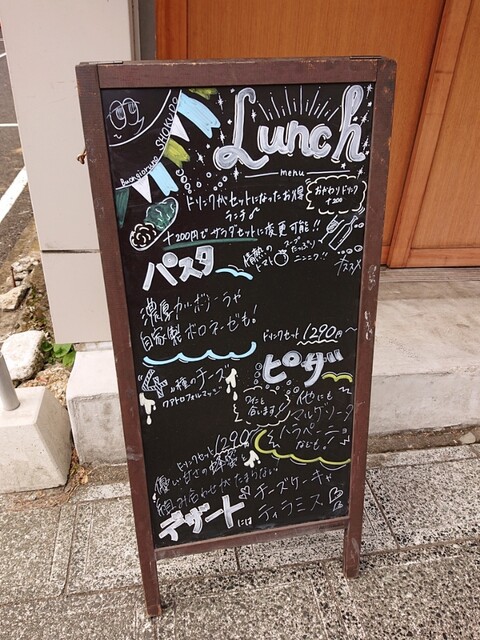 Buongiorno SHOKUDO
Lunch
menu
ドリンクがセットになったお得
ランチ♪
おかわりドリンク
+200
+200円でサラダセットに変更可能!!
パスタ
情熱の
トマト
スープ
たっぷり
ニンニク!!
オススメ
濃厚カルボナーラや
自家製ボロネーゼも!
ドリンクセット 1290円〜
ピザ
4種のチーズ
クアトロフォルマッジ
ワインと
合います
他にも
マルゲリータ
ハラペーニョ
なども!
ドリンクセット 1290
優しい甘さの蜂蜜と
組み合わせがたまらない!
デザート
には
チーズケーキ
ティラミス